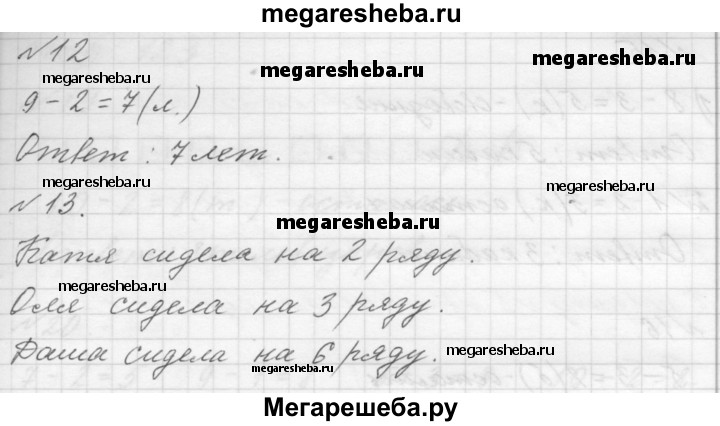 megaresheba.ru
№12
megaresheba.ru
megaresheba.ru
9 - 2 = 7 (л.)
megaresheba.ru
Ответ : 7 лет.
megaresheba.ru
№13.
megaresheba.ru
Катя сидела на 2 ряду.
megaresheba.ru
megaresheba.ru
Оля сидела на 3 ряду.
Даша сидела на 6 ряду.
megaresheba.ru
megaresheba.ru
Мегарешеба.ру